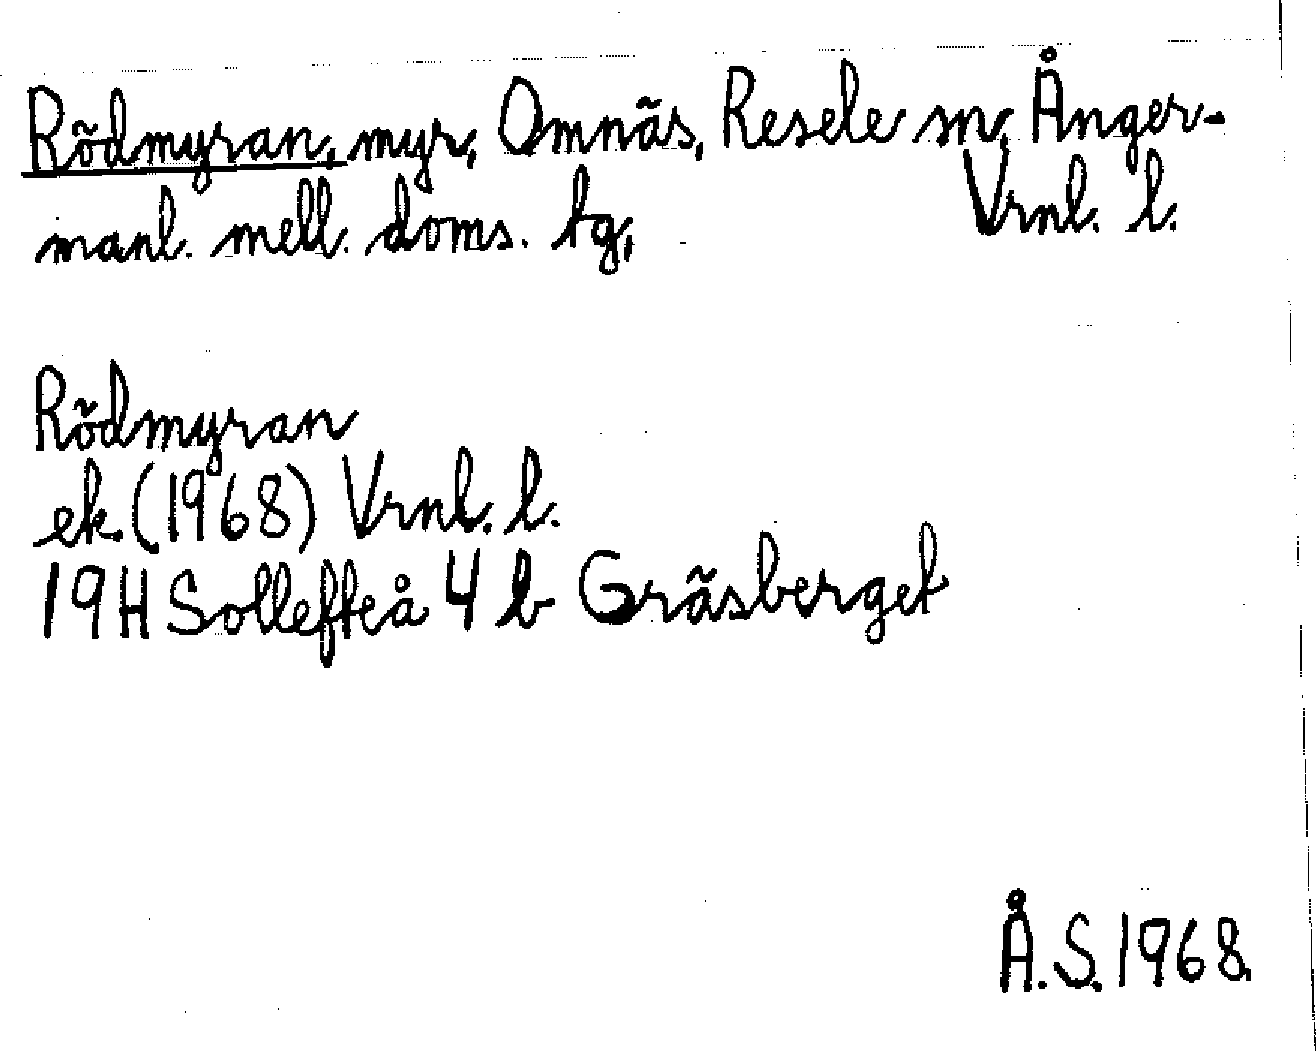 Rödmyran, myr, Omnäs, Resele sn, Ånger-
manl. mell. doms. tg, Vrnl. l.
Rödmyran
ek. (1968) Vrnl. l.
19H Sollefteå 4 b Gräsberget
Å.S. 1968.